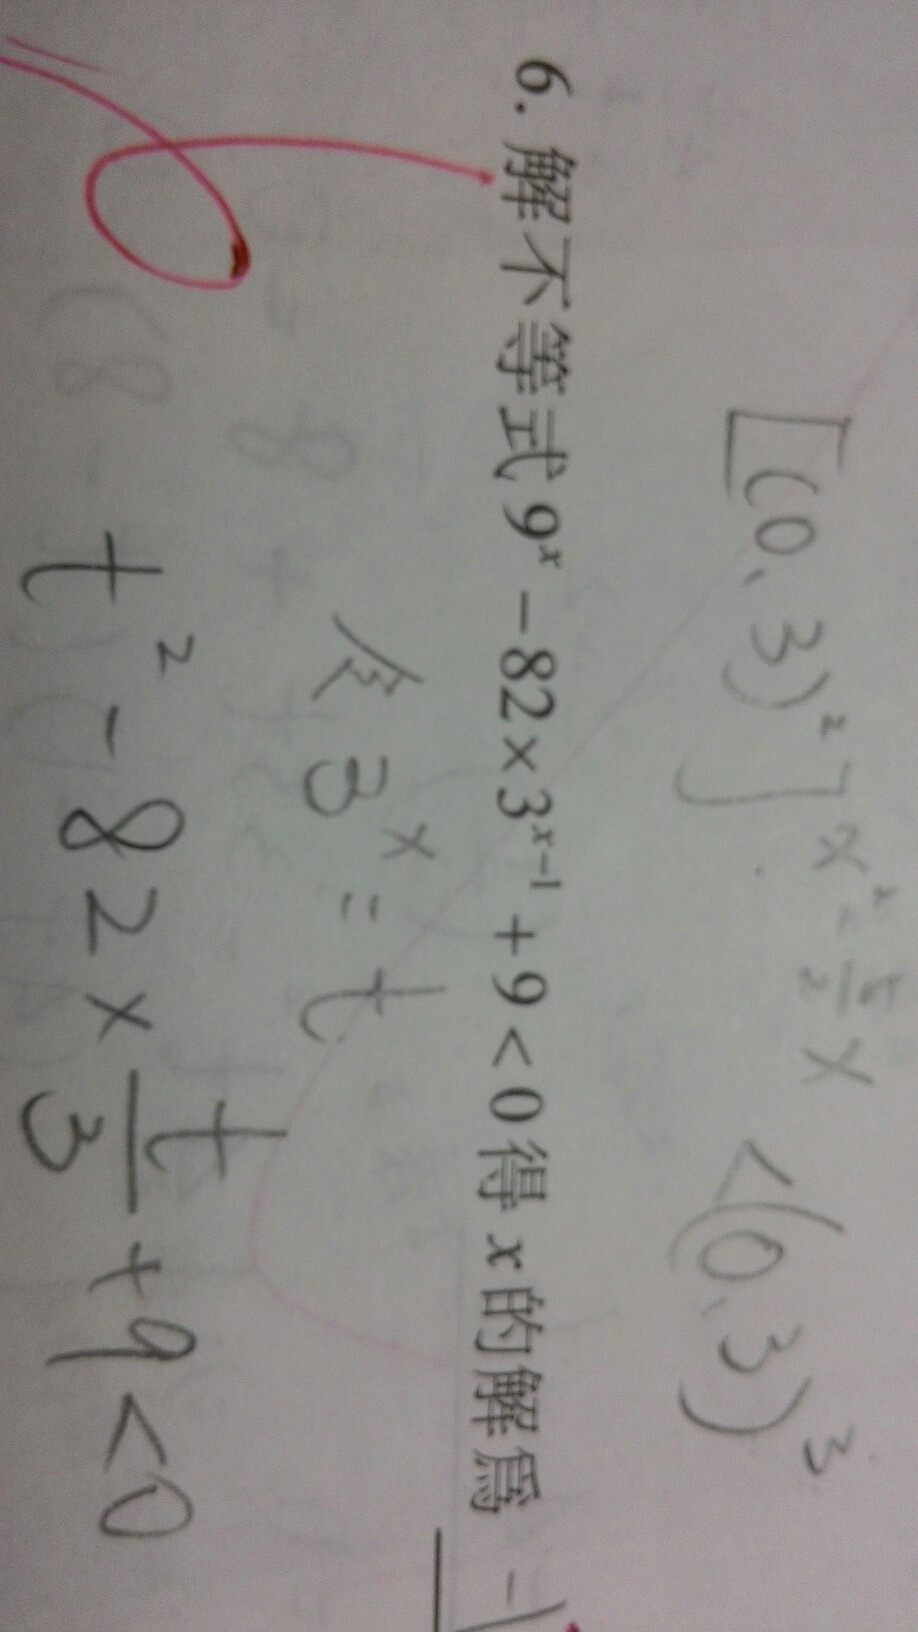 [(0.3)²]x²-½x <(0.3)³
6. 解不等式 9ˣ - 82×3ˣ⁻¹ + 9 < 0 得 x 的解爲 -1
令 3ˣ = t
t² - 82 × t/3 + 9 < 0